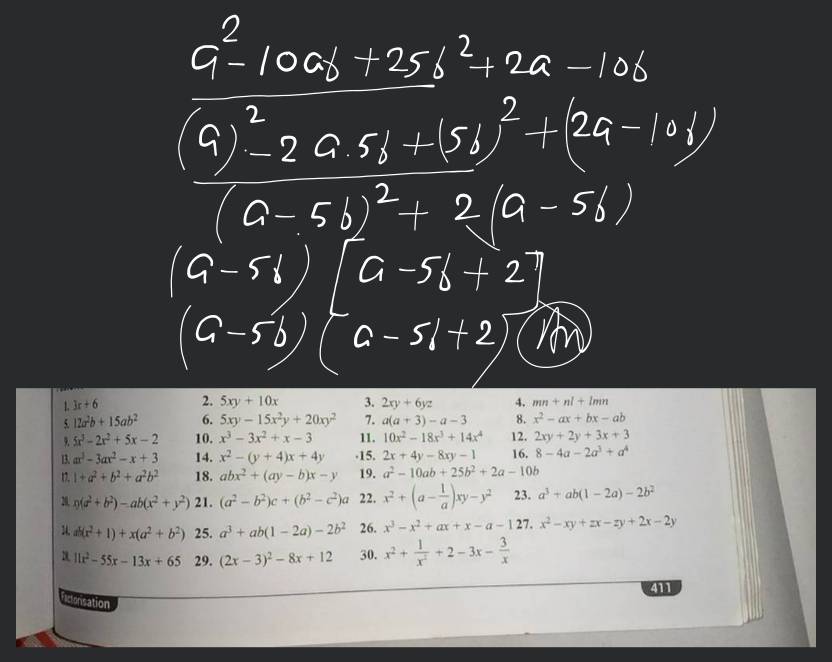 a² - 10ab + 25b² + 2a - 10b
(a)² - 2 a.5b + (5b)² + (2a - 10b)
(a - 5b)² + 2(a - 5b)
(a - 5b) [a - 5b + 2]
(a - 5b) (a - 5b + 2)
1. 3x + 6 2. 5xy + 10x 3. 2xy + 6yz 4. mn + nl + lmn
5. 12a²b + 15ab² 6. 5xy – 15x²y + 20xy² 7. a(a + 3) – a – 3 8. x² – ax + bx – ab
9. 5x³ – 2x² + 5x – 2 10. x³ – 3x² + x – 3 11. 10x² – 18x³ + 14x⁴ 12. 2xy + 2y + 3x + 3
13. ax³ – 3ax² – x + 3 14. x² – (y + 4)x + 4y 15. 2x + 4y – 8xy – 1 16. 8 – 4a – 2a³ + a⁴
17. 1 + a² + b² + a²b² 18. abx² + (ay – b)x – y 19. a² – 10ab + 25b² + 2a – 10b
20. xy(a² + b²) – ab(x² + y²) 21. (a² – b²)c + (b² – c²)a 22. x² + (a – 1/a)xy – y² 23. a³ + ab(1 – 2a) – 2b²
24. ab(x² + 1) + x(a² + b²) 25. a³ + ab(1 – 2a) – 2b² 26. x³ – x² + ax + x – a – 1 27. x² – xy + zx – zy + 2x – 2y
28. 11x² – 55x – 13x + 65 29. (2x – 3)² – 8x + 12 30. x² + 1/x² + 2 – 3x – 3/x
Factorisation 411